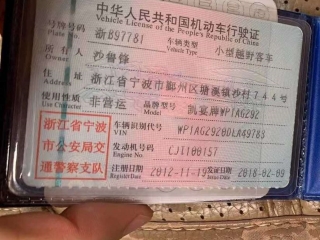 中华人民共和国机动车行驶证
Vehicle License of the People's Republic of China
号牌号码 浙B97781 车辆类型 小型越野客车
Plate No. Vehicle Type
所有人 沙鲁锋
Owner
住址 浙江省宁波市鄞州区塘溪镇沙村744号
Address
使用性质 非营运 品牌型号 凯宴牌WP1AG292
Use Character Model
浙江省宁波市公安局交通警察支队
车辆识别代号 WP1AG2920DLA49783
VIN
发动机号码 CJT100157
Engine No.
注册日期 2012-11-19 发证日期 2018-02-09
Register Date Issue Date